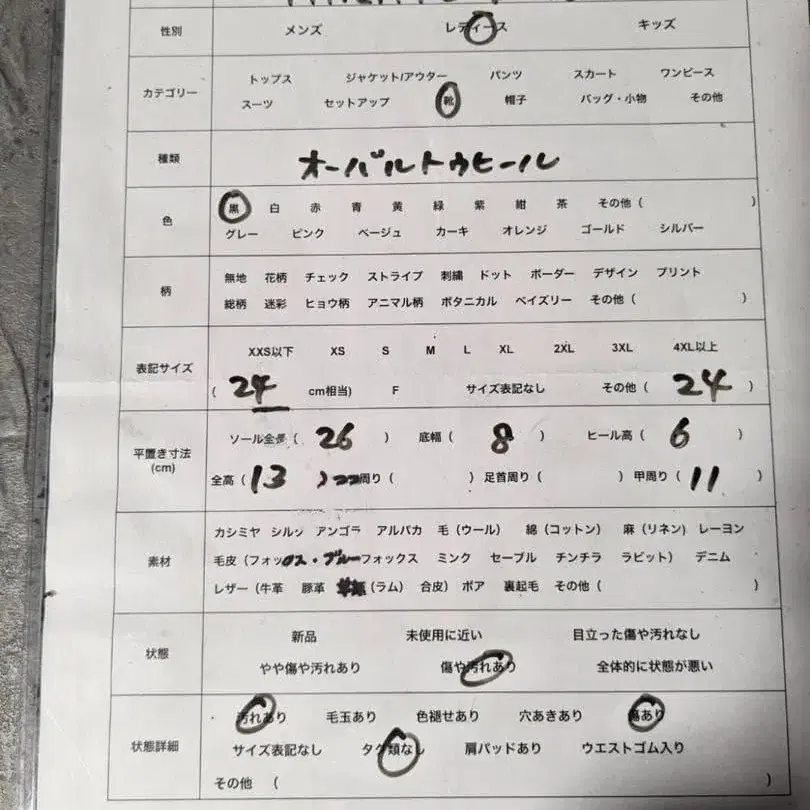 性別 メンズ レディース キッズ
カテゴリー
トップス ジャケット/アウター パンツ スカート ワンピース
スーツ セットアップ 靴 帽子 バッグ・小物 その他
種類 オーバルトゥヒール
色
黒 白 赤 青 黄 緑 紫 紺 茶 その他 ( )
グレー ピンク ベージュ カーキ オレンジ ゴールド シルバー
柄
無地 花柄 チェック ストライプ 刺繍 ドット ボーダー デザイン プリント
総柄 迷彩 ヒョウ柄 アニマル柄 ボタニカル ペイズリー その他 ( )
表記サイズ
XXS以下 XS S M L XL 2XL 3XL 4XL以上
( 24 cm相当) F サイズ表記なし その他 ( 24 )
平置き寸法
(cm)
ソール全長 ( 26 ) 底幅 ( 8 ) ヒール高 ( 6 )
全高 ( 13 ) 周り ( ) 足首周り ( ) 甲周り ( 11 )
素材
カシミヤ シルク アンゴラ アルパカ 毛 (ウール) 綿 (コットン) 麻 (リネン) レーヨン
毛皮 (フォックス・ブルーフォックス ミンク セーブル チンチラ ラビット) デニム
レザー (牛革 豚革 (ラム) 合皮) ボア 裏起毛 その他 ( )
状態
新品 未使用に近い 目立った傷や汚れなし
やや傷や汚れあり 傷や汚れあり 全体的に状態が悪い
状態詳細
汚れあり 毛玉あり 色褪せあり 穴あきあり 傷あり
サイズ表記なし タグ類なし 肩パッドあり ウエストゴム入り
その他 ( )